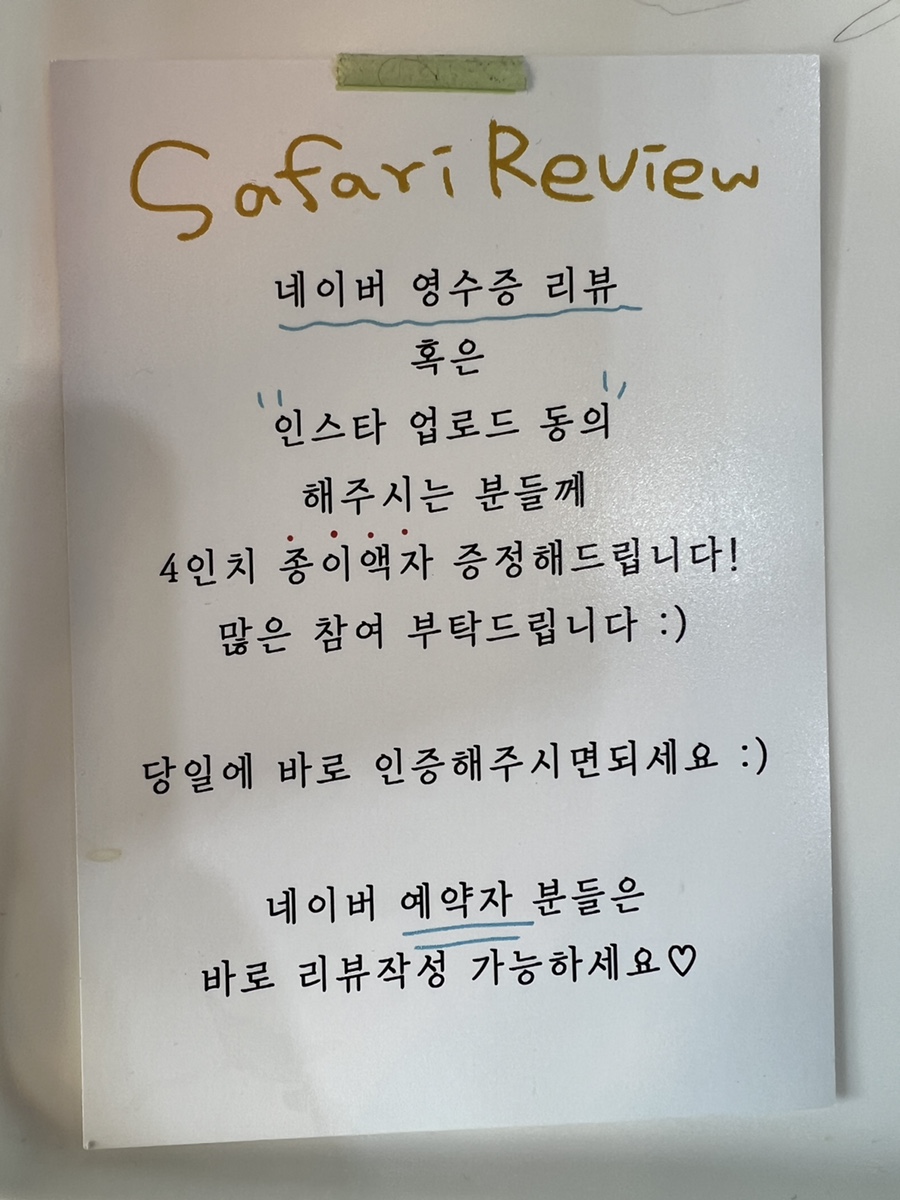 Safari Review
네이버 영수증 리뷰
혹은
"인스타 업로드 동의"
해주시는 분들께
4인치 종이액자 증정해드립니다!
많은 참여 부탁드립니다 :)
당일에 바로 인증해주시면되세요 :)
네이버 예약자 분들은
바로 리뷰작성 가능하세요♡